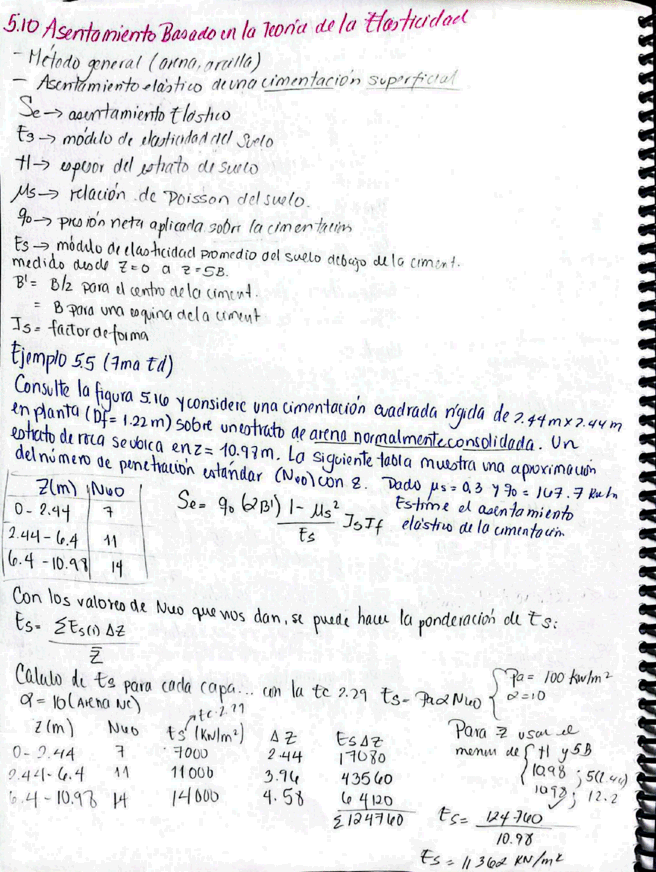 5.10 Asentamiento Basado en la Teoría de la Elasticidad
- Método general (arena, arcilla)
- Asentamiento elástico de una cimentación superficial
Se → asentamiento Elástico
Es → módulo de elasticidad del suelo
H → espesor del estrato de suelo
μs → relación de Poisson del suelo.
qo → presión neta aplicada sobre la cimentación
Es → módulo de elasticidad promedio del suelo debajo de la ciment.
medido desde z=0 a z=5B.
B' = B/2 para el centro de la ciment.
= B para una esquina de la ciment
Is = factor de forma
Ejemplo 5.5 (7ma Ed)
Consulte la figura 5.16 y considere una cimentación cuadrada rígida de 2.44m x 2.44m
en planta (Df = 1.22m) sobre un estrato de arena normalmente consolidada. Un
estrato de roca se ubica en z = 10.97m. La siguiente tabla muestra una aproximación
del número de penetración estándar (N60) con z. Dado μs = 0.3 y qo = 167.7
Estime el asentamiento
elástico de la cimentación
Z(m) N60
0 - 2.44 7
2.44 - 6.4 11
6.4 - 10.98 14
Se = qo (αB') 1 - μs² / Es Is If
Con los valores de N60 que nos dan, se puede hacer la ponderación de Es:
Es = ΣEs(i) ΔZ / z̄
Cálculo de Es para cada capa... con la Ec 2.29 Es = Pa α N60 { Pa = 100 kN/m²
α = 10
α = 10 (Arena NC)
Ec 2.29
Z(m) N60 Es (KN/m²) ΔZ EsΔZ
0 - 2.44 7 7000 2.44 17080
2.44 - 6.4 11 11000 3.96 43560
6.4 - 10.98 14 14000 4.58 64120
Σ124760
Para z̄ usar el
menor de { H y 5B
10.98 ; 5(2.44)
10.98 ; 12.2
Es = 124760 / 10.98
Es = 11362 KN/m²